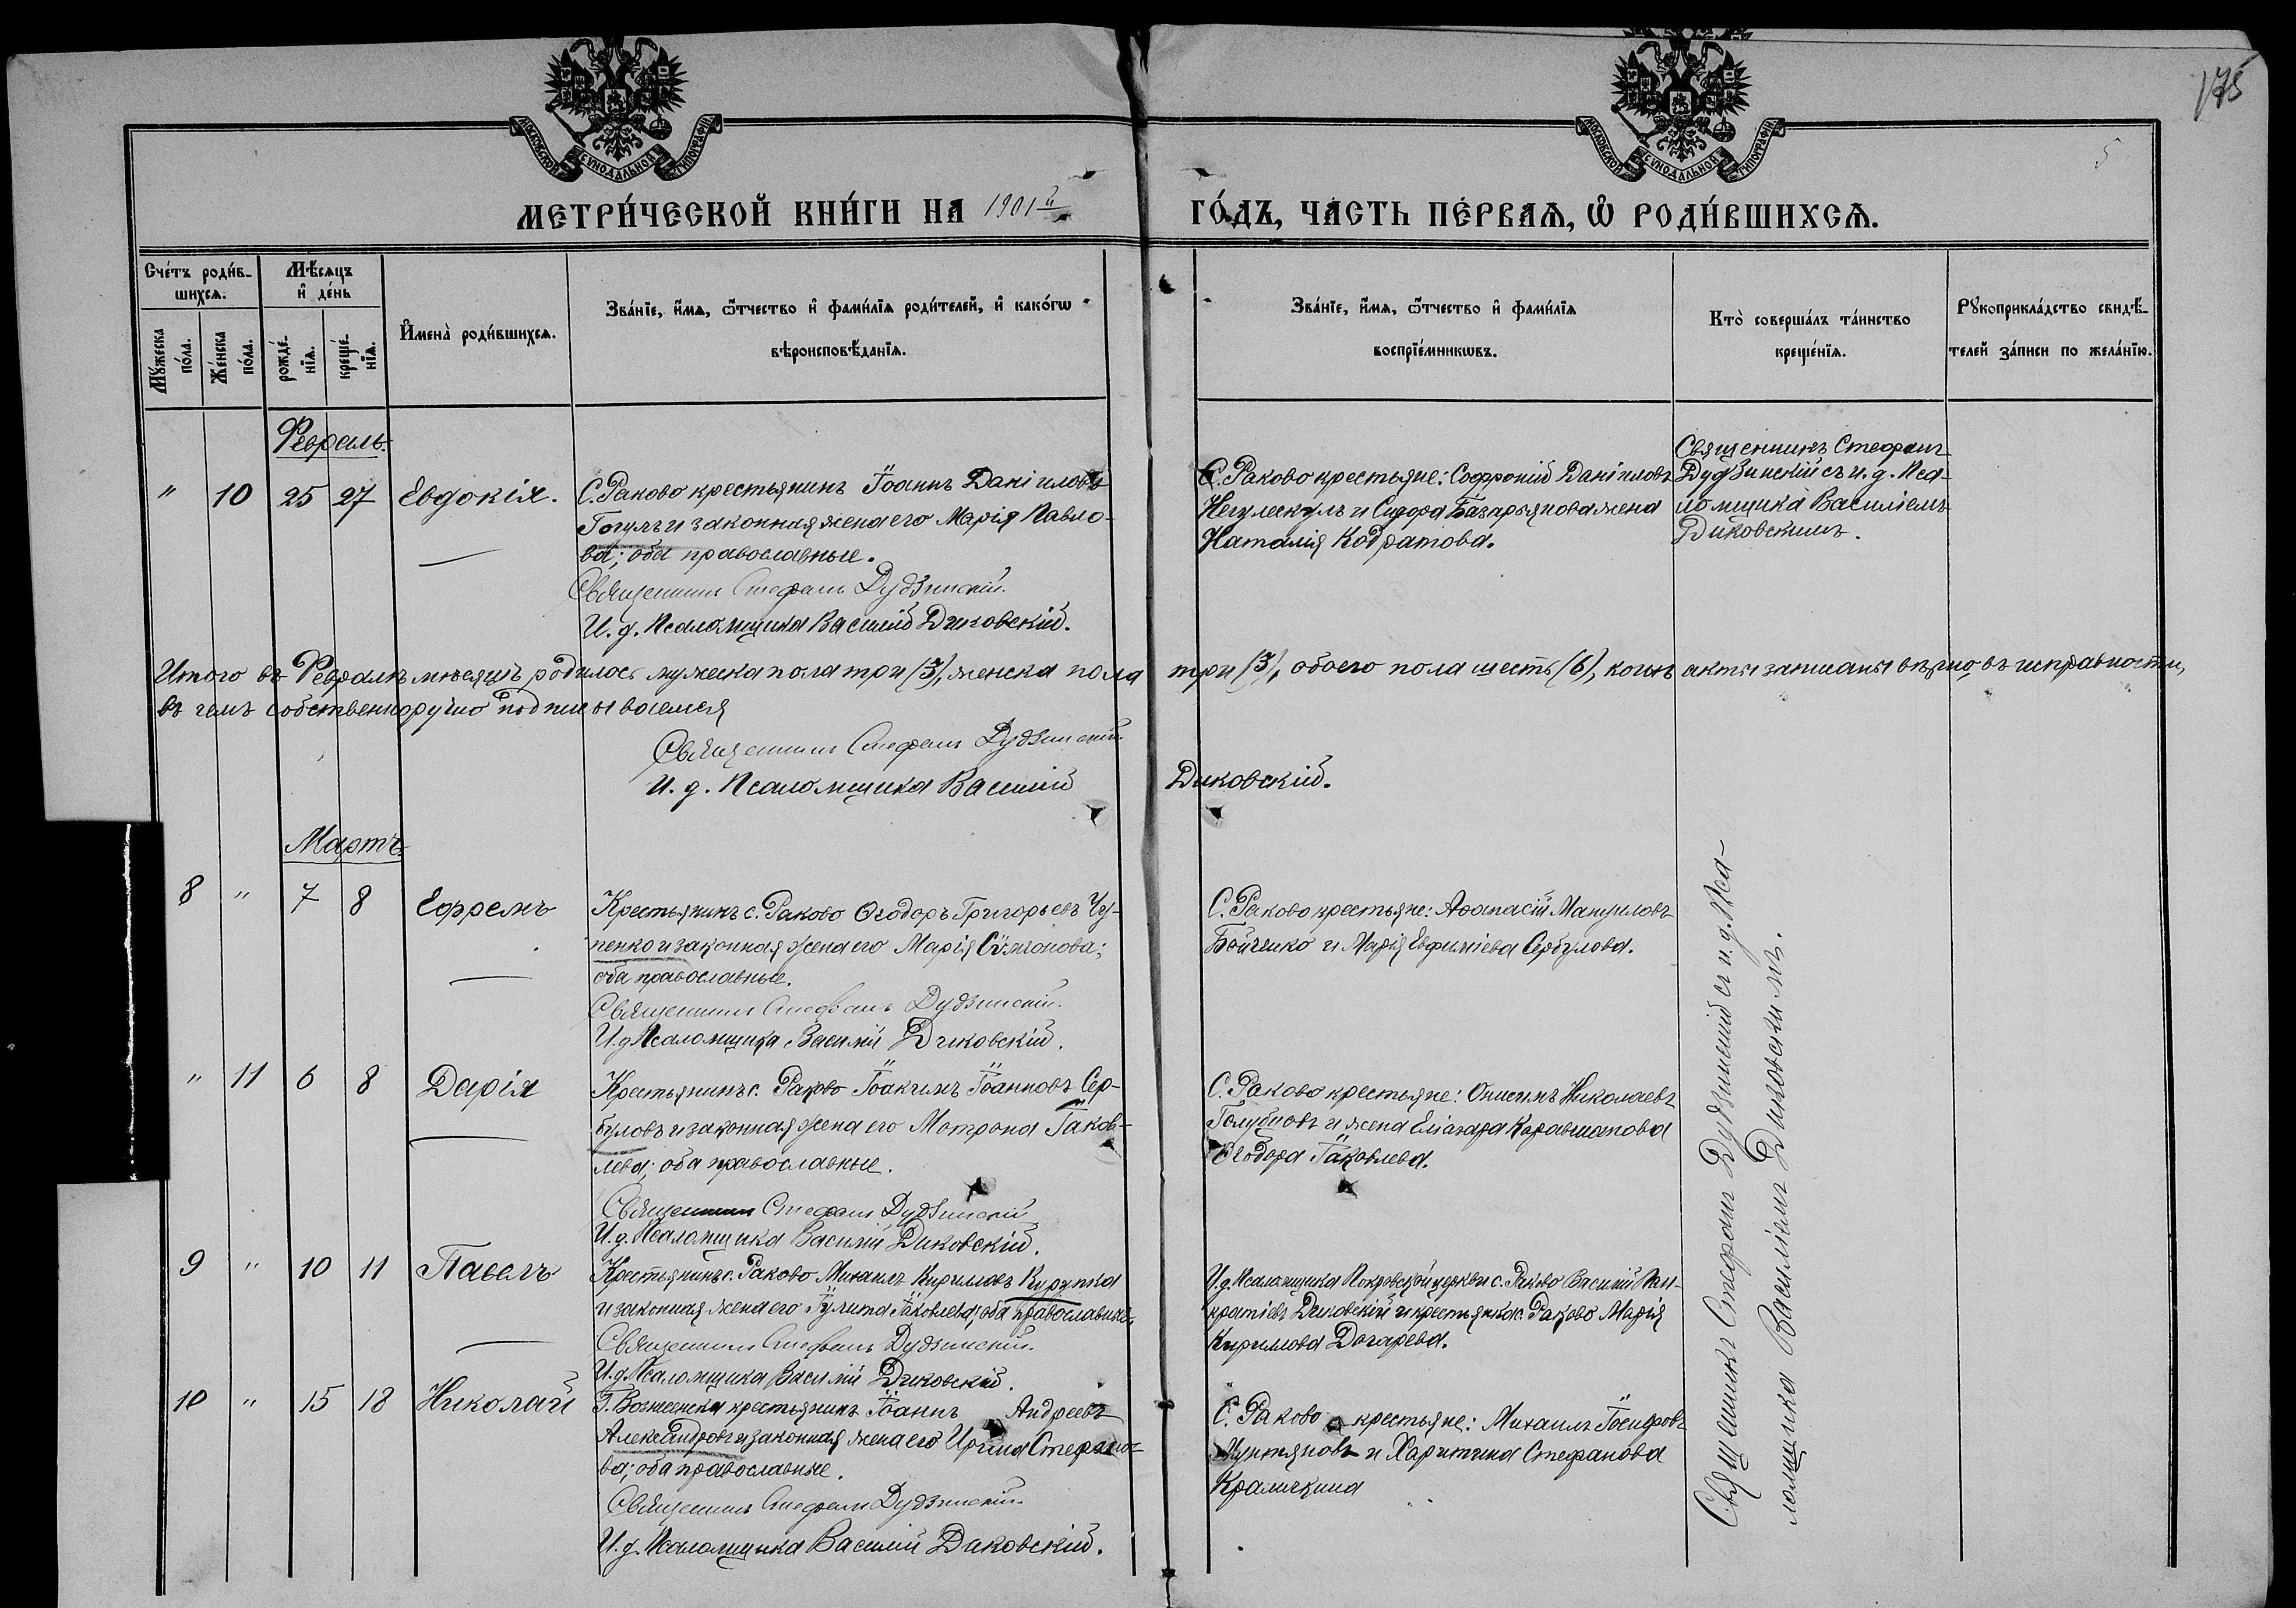 175
5
МОСКОВСКОЙ СѴНОДАЛЬНОЙ ТИПОГРАФІИ
МОСКОВСКОЙ СѴНОДАЛЬНОЙ ТИПОГРАФІИ
МЕТРИ́ЧЕСКОЙ КНИ́ГИ НА 1901й ГО́ДЪ, ЧА́СТЬ ПЕ́РВАѦ, Ѽ РОДИ́ВШИХСѦ.
Сче́тъ роди́в-
шихсѧ.
Мѣ́сѧцъ
и҆ де́нь
Мꙋ́жеска
по́ла.
Же́нска
по́ла.
рожде́-
нїѧ.
креще́-
нїѧ.
И҆мена̀ роди́вшихсѧ.
Зва́нїе, и҆́мѧ, ѻ҆́тчество и҆ фами́лїѧ роди́телей, и҆ како́гѡ
вѣроисповѣ́данїѧ.
Зва́нїе, и҆́мѧ, ѻ҆́тчество и҆ фами́лїѧ
воспрїе́мникѡвъ.
Кто̀ соверша́лъ та́инство
креще́нїѧ.
Рꙋкоприкла́дство свидѣ́-
телей за́писи по жела́нїю.
Февраль.
" 10 25 27 Евдокія.
С. Раково крестьянинъ Іоаннъ Даніиловъ
Гогулъ и законная жена его Марія Павло-
ва; оба православные.
Священникъ Стефанъ Дудзинскій.
И. д. Псаломщика Василій Диковскій.
С. Раково крестьяне: Софроній Даніиловъ
Негулескулъ и Сидора Базарьянова жена
Наталія Кодратова.
Священникъ Стефанъ
Дудзинскій съ и. д. Пса-
ломщика Василіемъ
Диковскимъ.
Итого въ Февралѣ мѣсяцѣ родилось мужеска пола три (3), женска пола три (3), обоего пола шесть (6), коихъ акты записаны вѣрно, въ исправности,
въ чемъ собственноручно подписываемся
Священникъ Стефанъ Дудзинскій
И. д. Псаломщика Василій Диковскій.
Мартъ
8 " 7 8 Ефремъ
Крестьянинъ с. Раково Ѳеодоръ Григорьевъ Чу-
пенко и законная жена его Марія Сѵмеонова;
оба православные.
Священникъ Стефанъ Дудзинскій.
И. д. Псаломщика Василій Диковскій.
С. Раково крестьяне: Аѳанасій Мануиловъ
Бойченко и Марія Евфиміева Сербулова.
" 11 6 8 Дарія
Крестьянинъ с. Раково Іоакимъ Іоанновъ Сер-
буловъ и законная жена его Матрона Іаков-
лева; оба православные.
Священникъ Стефанъ Дудзинскій
И. д. Псаломщика Василій Диковскій.
С. Раково крестьяне: Онисимъ Николаевъ
Голубновъ и жена Еліазара Каравшанова
Ѳеодора Іаковлева.
9 " 10 11 Павелъ
Крестьянинъ с. Раково Михаилъ Кирилловъ Курупка
и законная жена его Іулита Іаковлева; оба православные.
Священникъ Стефанъ Дудзинскій.
И. д. Псаломщика Василій Диковскій.
И. д. Псаломщика Покровской церкви с. Раково Василій Пан-
кратіевъ Диковскій и крестьянка с. Раково Марія
Кириллова Догарева.
10 " 15 18 Николай
Г. Вознесенска крестьянинъ Іоаннъ Андреевъ
Александровъ и законная жена его Ирина Стефано-
ва; оба православные.
Священникъ Стефанъ Дудзинскій
И. д. Псаломщика Василій Диковскій.
С. Раково крестьяне: Михаилъ Іосифовъ
Мунтяновъ и Харитина Стефанова
Крамичкина
Священникъ Стефанъ Дудзинскій съ и. д. Пса-
ломщика Василіемъ Диковскимъ.